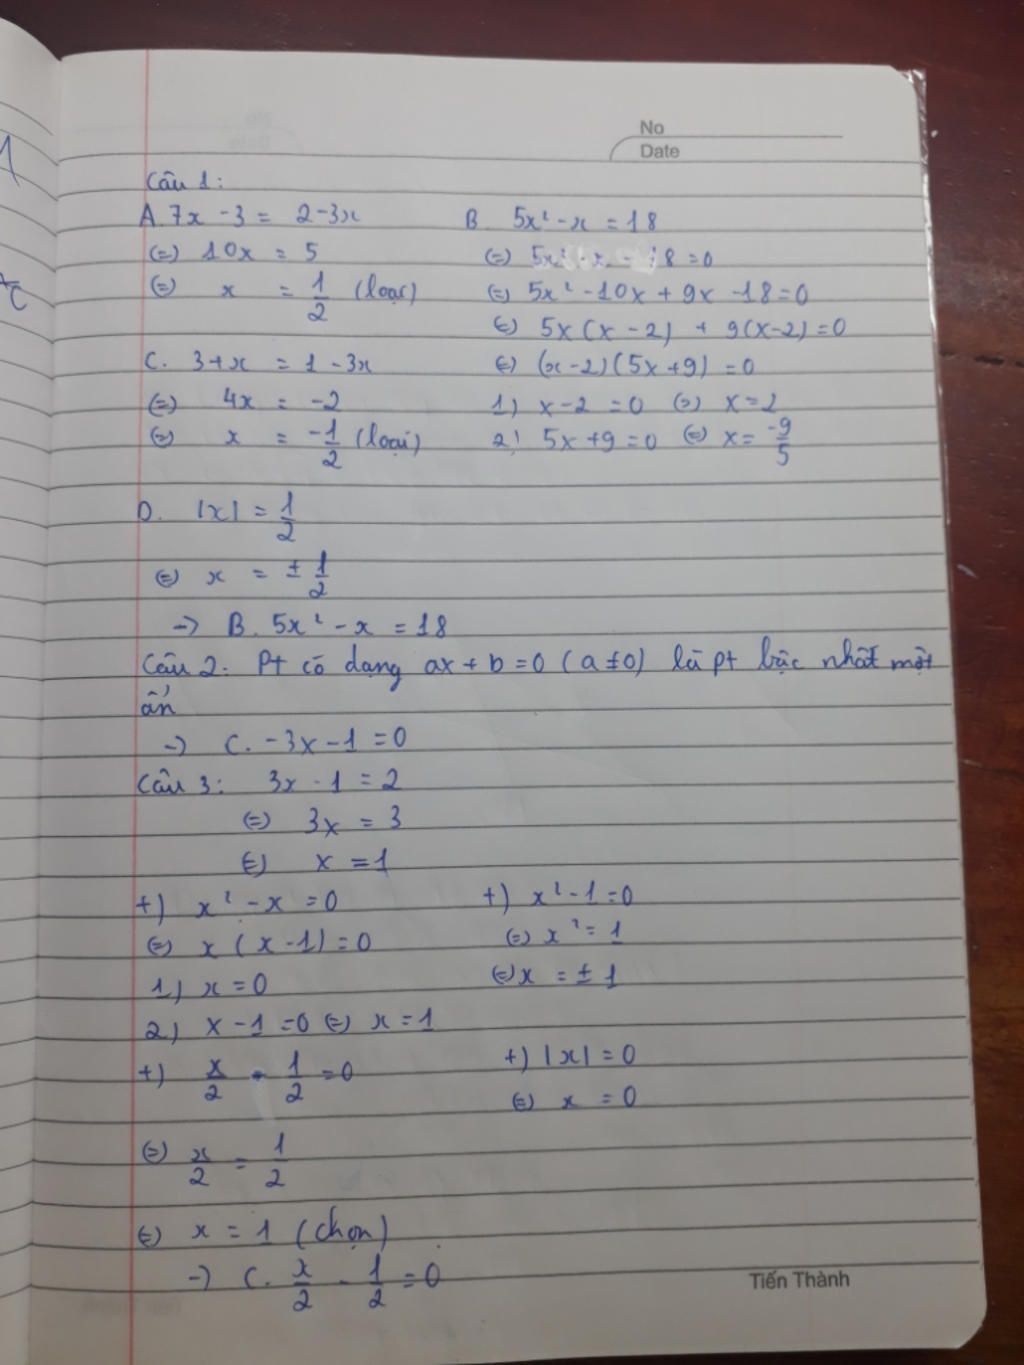 No
Date
Câu 1:
A. 7x - 3 = 2 - 3x
(=) 10x = 5
(=) x = 1/2 (loại)
B. 5x² - x = 18
(=) 5x² - x - 18 = 0
(=) 5x² - 10x + 9x - 18 = 0
(=) 5x(x - 2) + 9(x - 2) = 0
(=) (x - 2)(5x + 9) = 0
1) x - 2 = 0 (=) x = 2
2) 5x + 9 = 0 (=) x = -9/5
C. 3 + x = 1 - 3x
(=) 4x = -2
(=) x = -1/2 (loại)
D. |x| = 1/2
(=) x = ± 1/2
-> B. 5x² - x = 18
Câu 2: Pt có dạng ax + b = 0 (a ≠ 0) là pt bậc nhất một
ẩn
-> C. -3x - 1 = 0
Câu 3: 3x - 1 = 2
(=) 3x = 3
(=) x = 1
+) x² - x = 0
(=) x(x - 1) = 0
1) x = 0
2) x - 1 = 0 (=) x = 1
+) x² - 1 = 0
(=) x² = 1
(=) x = ± 1
+) x/2 - 1/2 = 0
+) |x| = 0
(=) x = 0
(=) x/2 = 1/2
(=) x = 1 (chọn)
-> C. x/2 - 1/2 = 0
Tiến Thành